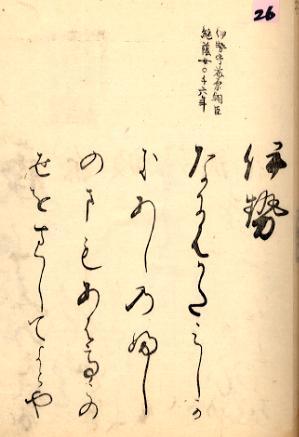 26
伊勢守藤原朝臣
継蔭女
伊勢
なにはかたみしか
きあし乃ふし
のまもあはてこの
世をすくしてよとや